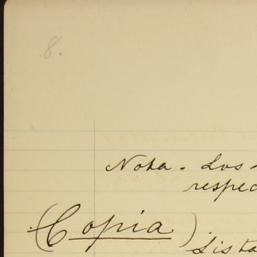 8.
Nota. Los
respec
(Copia)
Lista